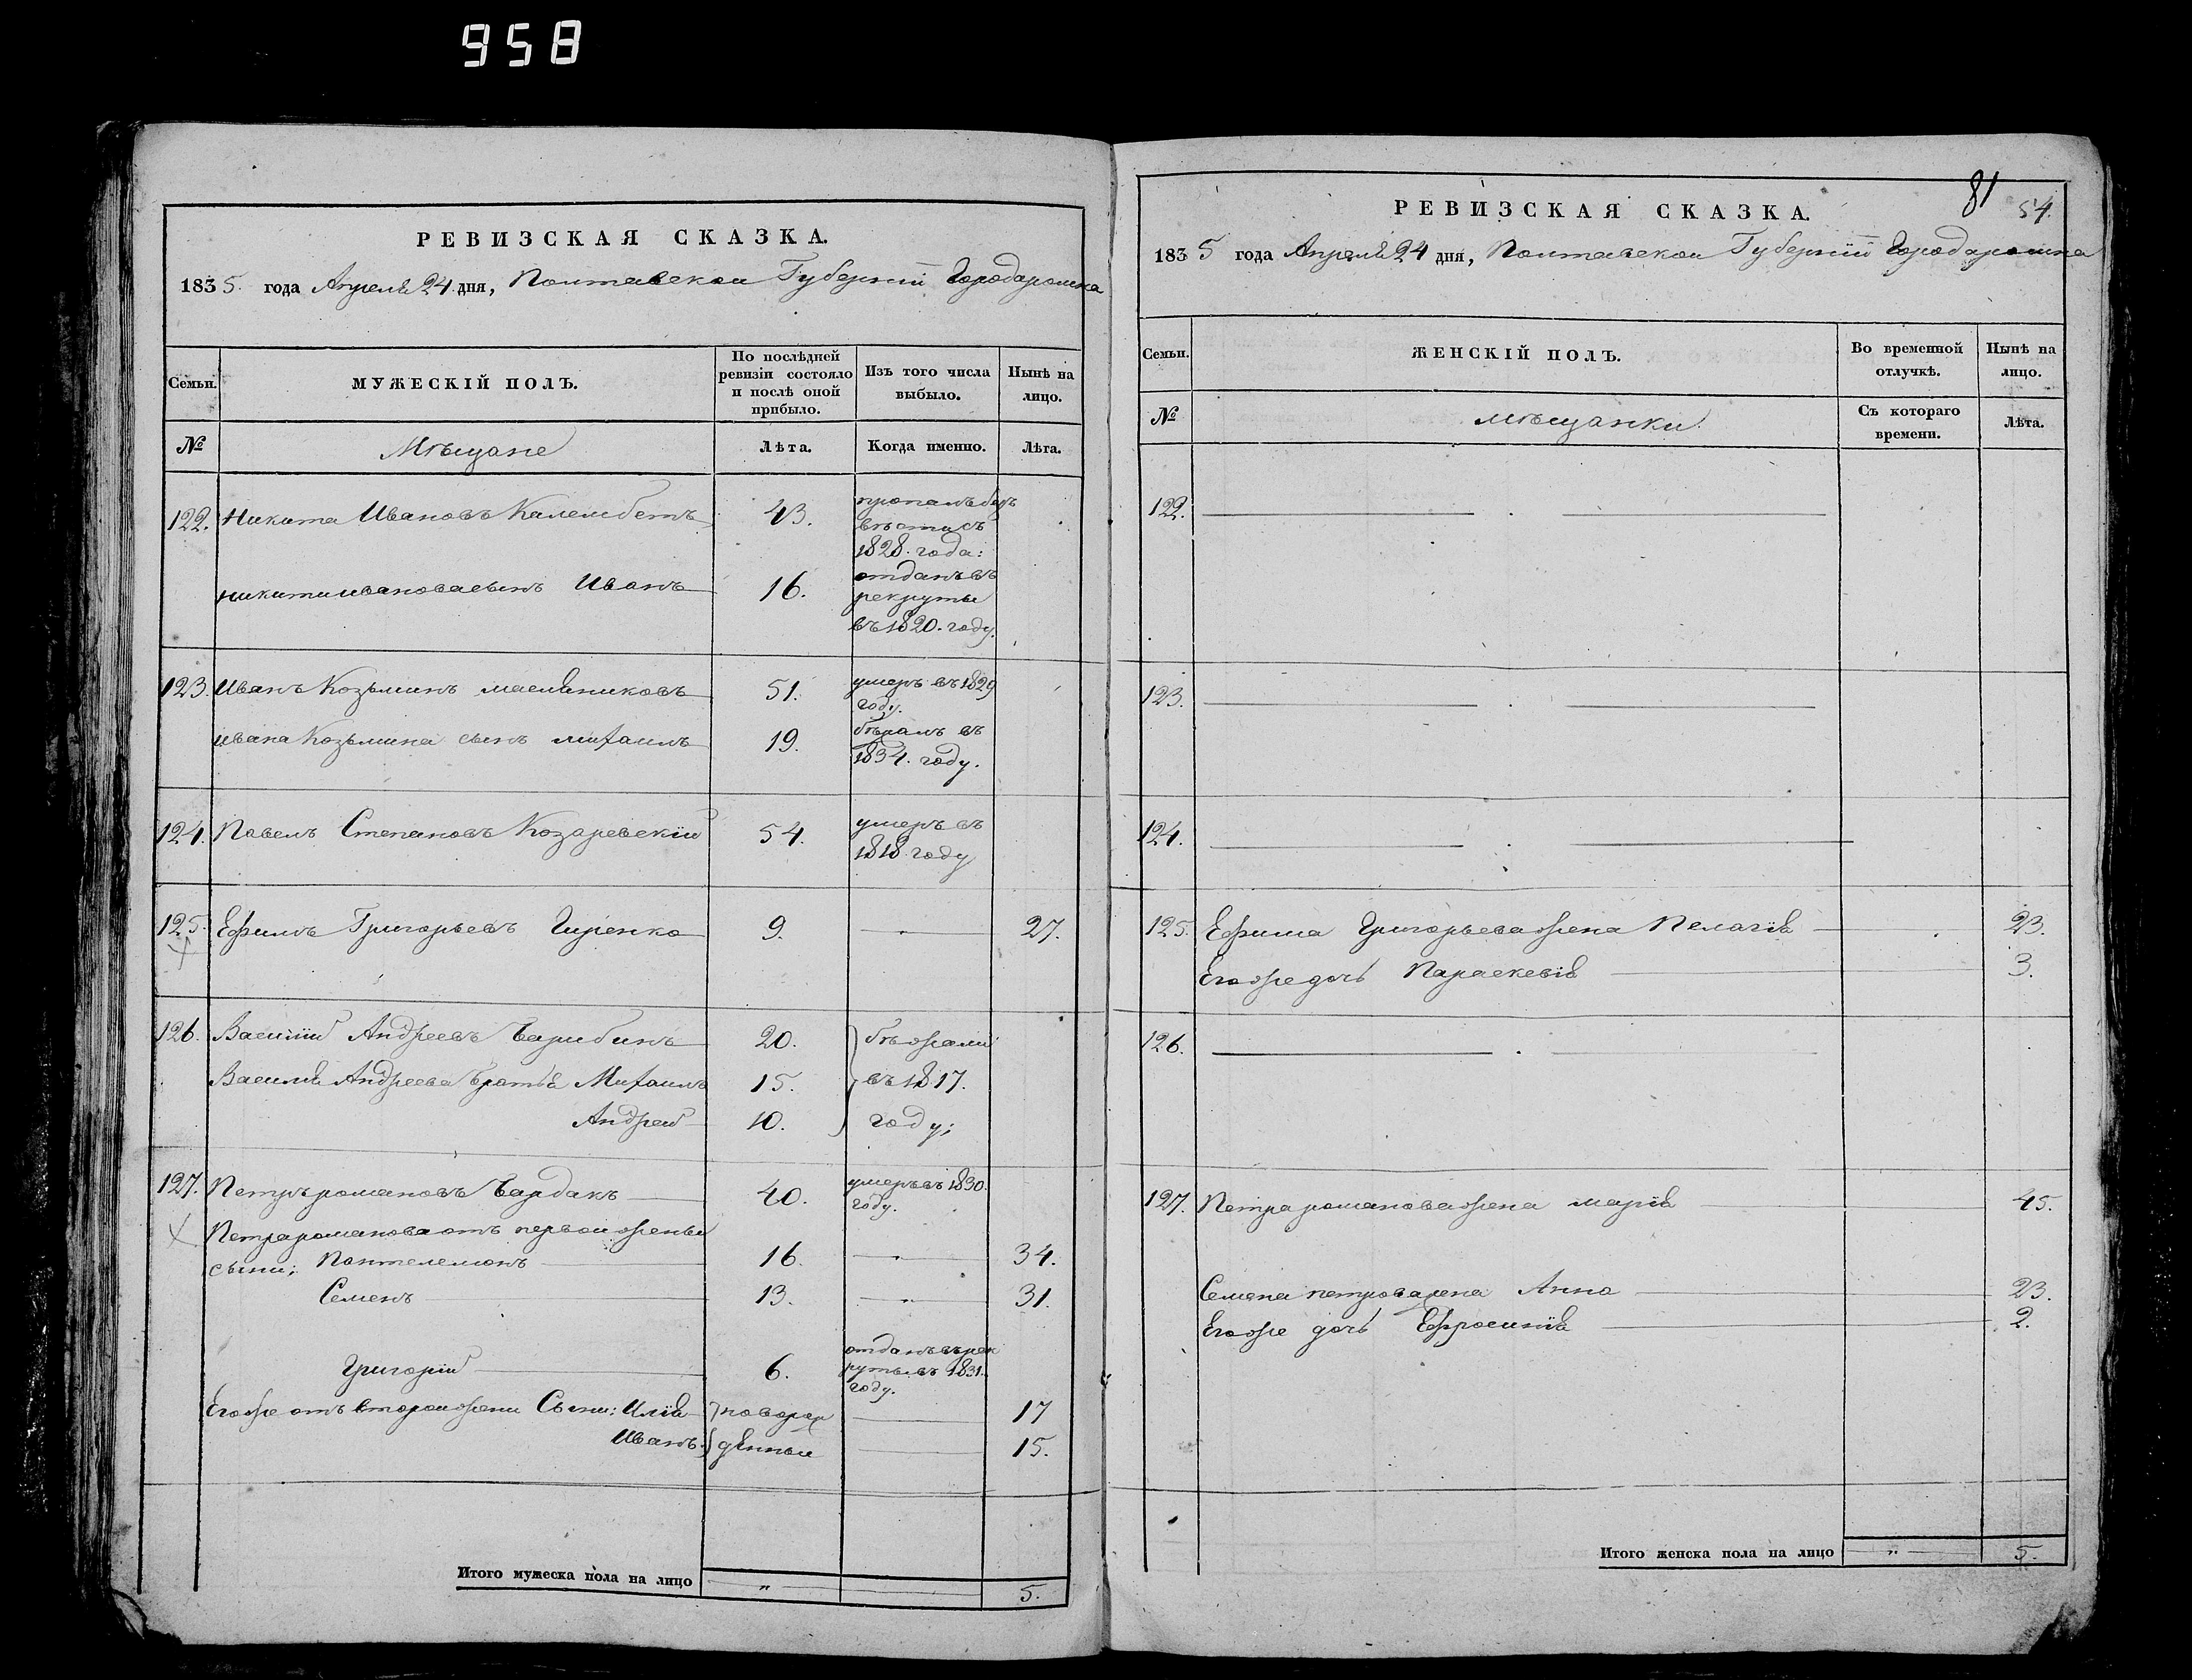 958
РЕВИЗСКАЯ СКАЗКА.
1835. года Апреля 24 дня, Полтавской Губерніи Города ромна
Семьи.
МУЖЕСКІЙ ПОЛЪ.
По послѣдней ревизіи состояло и послѣ оной прибыло.
Изъ того числа выбыло.
Нынѣ на лицо.
№
Мѣщане
Лѣта.
Когда именно.
Лѣта.
122. Никита Ивановъ Калембетъ 43. пропалъ безъ
вѣсти съ
1828. года:
Никити иванова сынъ Иванъ 16. отданъ въ
рекруты
въ 1820. году.
123. Иванъ Козьминъ масляниковъ 51. умеръ въ 1829
году.
ивана Козьмина сынъ михаилъ 19. бѣжалъ въ
1834. году.
124. Павелъ Степановъ Козаревскій 54. умеръ въ
1818 году
125. Ефимъ Григорьевъ Гиренко 9. 27.
126. Василій Андреевъ 20. бѣжали
Василія Андреева братья Михаилъ 15. въ 1817.
Андрей 10. году;
127. Петръ романовъ 40. умеръ въ 1830.
году.
Петра романова отъ первой жены
сыни; Пантелемонъ 16. 34.
Семенъ 13. 31.
Григорій 6. отданъ въ рек
руты въ 1831.
году.
Егоже отъ второй жени Сыни: Илія новорож 17
Иванъ. денныи 15.
Итого мужеска пола на лицо „ 5.
81
54.
РЕВИЗСКАЯ СКАЗКА.
1835 года Апреля 24 дня, Полтавской Губерніи Города ромна
Семьи.
ЖЕНСКІЙ ПОЛЪ.
Во временной отлучкѣ.
Нынѣ на лицо.
№
мѣщанки
Съ котораго времени.
Лѣта.
122.
123.
124.
125. Ефима Григорьева жена Пелагія 23.
Егоже дочь Параскевія 3.
126.
127. Петра романова жена марія 45.
Семена петрова жена Анна 23.
Егоже дочь Ефросинія 2.
Итого женска пола на лицо „ 5.